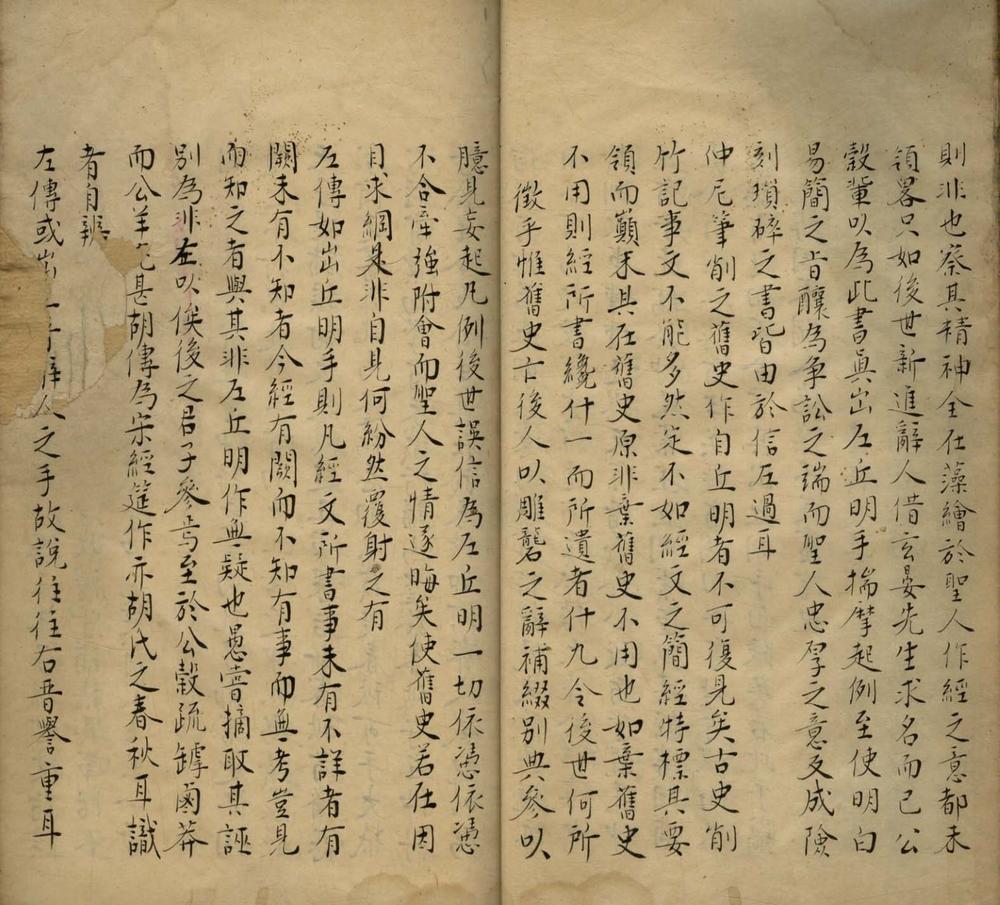 則非也察其精神全在藻繪於聖人作經之意都未
領畧只如後世新進辭人借玄晏先生求名而已公
穀輩以為此書眞出左丘明手揣摩起例至使明白
易簡之旨釀為爭訟之端而聖人忠厚之意反成險
刻瑣碎之書皆由於信左過耳
仲尼筆削之舊史作自丘明者不可復見矣古史削
竹記事文不能多然定不如經文之簡經特標其要
領而顚末具在舊史原非棄舊史不用也如棄舊史
不用則經所書纔什一而所遺者什九令後世何所
徵乎惟舊史亡後人以雕龍之辭補綴別典參以
臆見妄起凡例後世誤信為左丘明一切依憑依憑
不合牽強附會而聖人之情遂晦矣使舊史若在因
目求綱是非自見何紛然覆射之有
左傳如出丘明手則凡經文所書事未有不詳者有
闕未有不知者今經有闕而不知有事而無考豈見
而知之者與其非左丘明作無疑也愚嘗摘取其誣
別為非左以俟後之君子參焉至於公穀疏罅鹵莽
而公羊甚胡傳為宋經筵作亦胡氏之春秋耳識
者自辨
左傳或出人之手故說往往右晉譽重耳